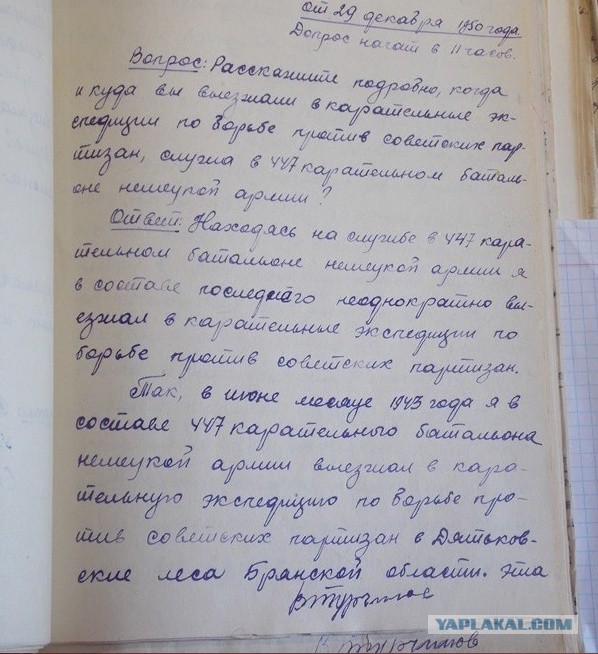 от 29 декабря 1950 года.
Допрос начат в 11 часов.
Вопрос: Расскажите подробно, когда
и куда вы выезжали в карательные эк-
спедиции по борьбе против советских пар-
тизан, служа в 447 карательном баталь-
оне немецкой армии?
Ответ: Находясь на службе в 447 кара-
тельном батальоне немецкой армии я
в составе последнего неоднократно вы-
езжал в карательные экспедиции по
борьбе против советских партизан.
Так, в июне месяце 1943 года я в
составе 447 карательного батальона
немецкой армии выезжал в кара-
тельную экспедицию по борьбе про-
тив советских партизан в Дятьков-
ские леса Брянской области. Эта
YAPLAKAL.COM